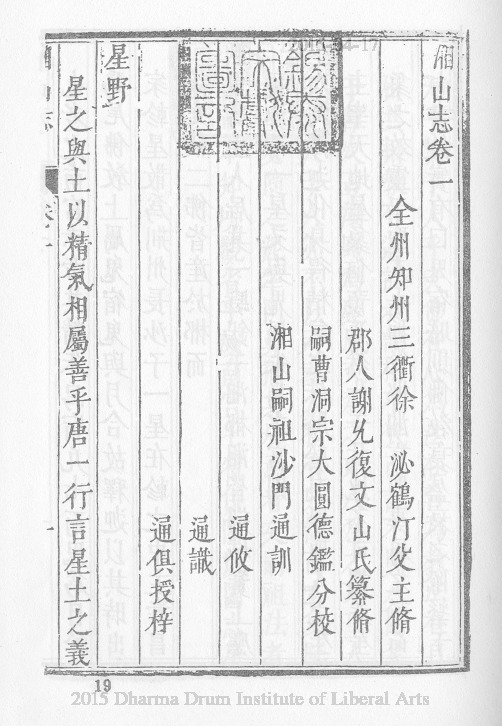 湘山志卷一
全州知州三衢徐 泌鶴汀父主脩
郡人謝允復文山氏纂脩
嗣曹洞宗大圓德鑑分校
湘山嗣祖沙門通訓
通攸
通識
通俱授梓
星野
星之與土以精氣相屬善乎唐一行言星土之義
山志
卷一
一
19
2015 Dharma Drum Institute of Liberal Arts